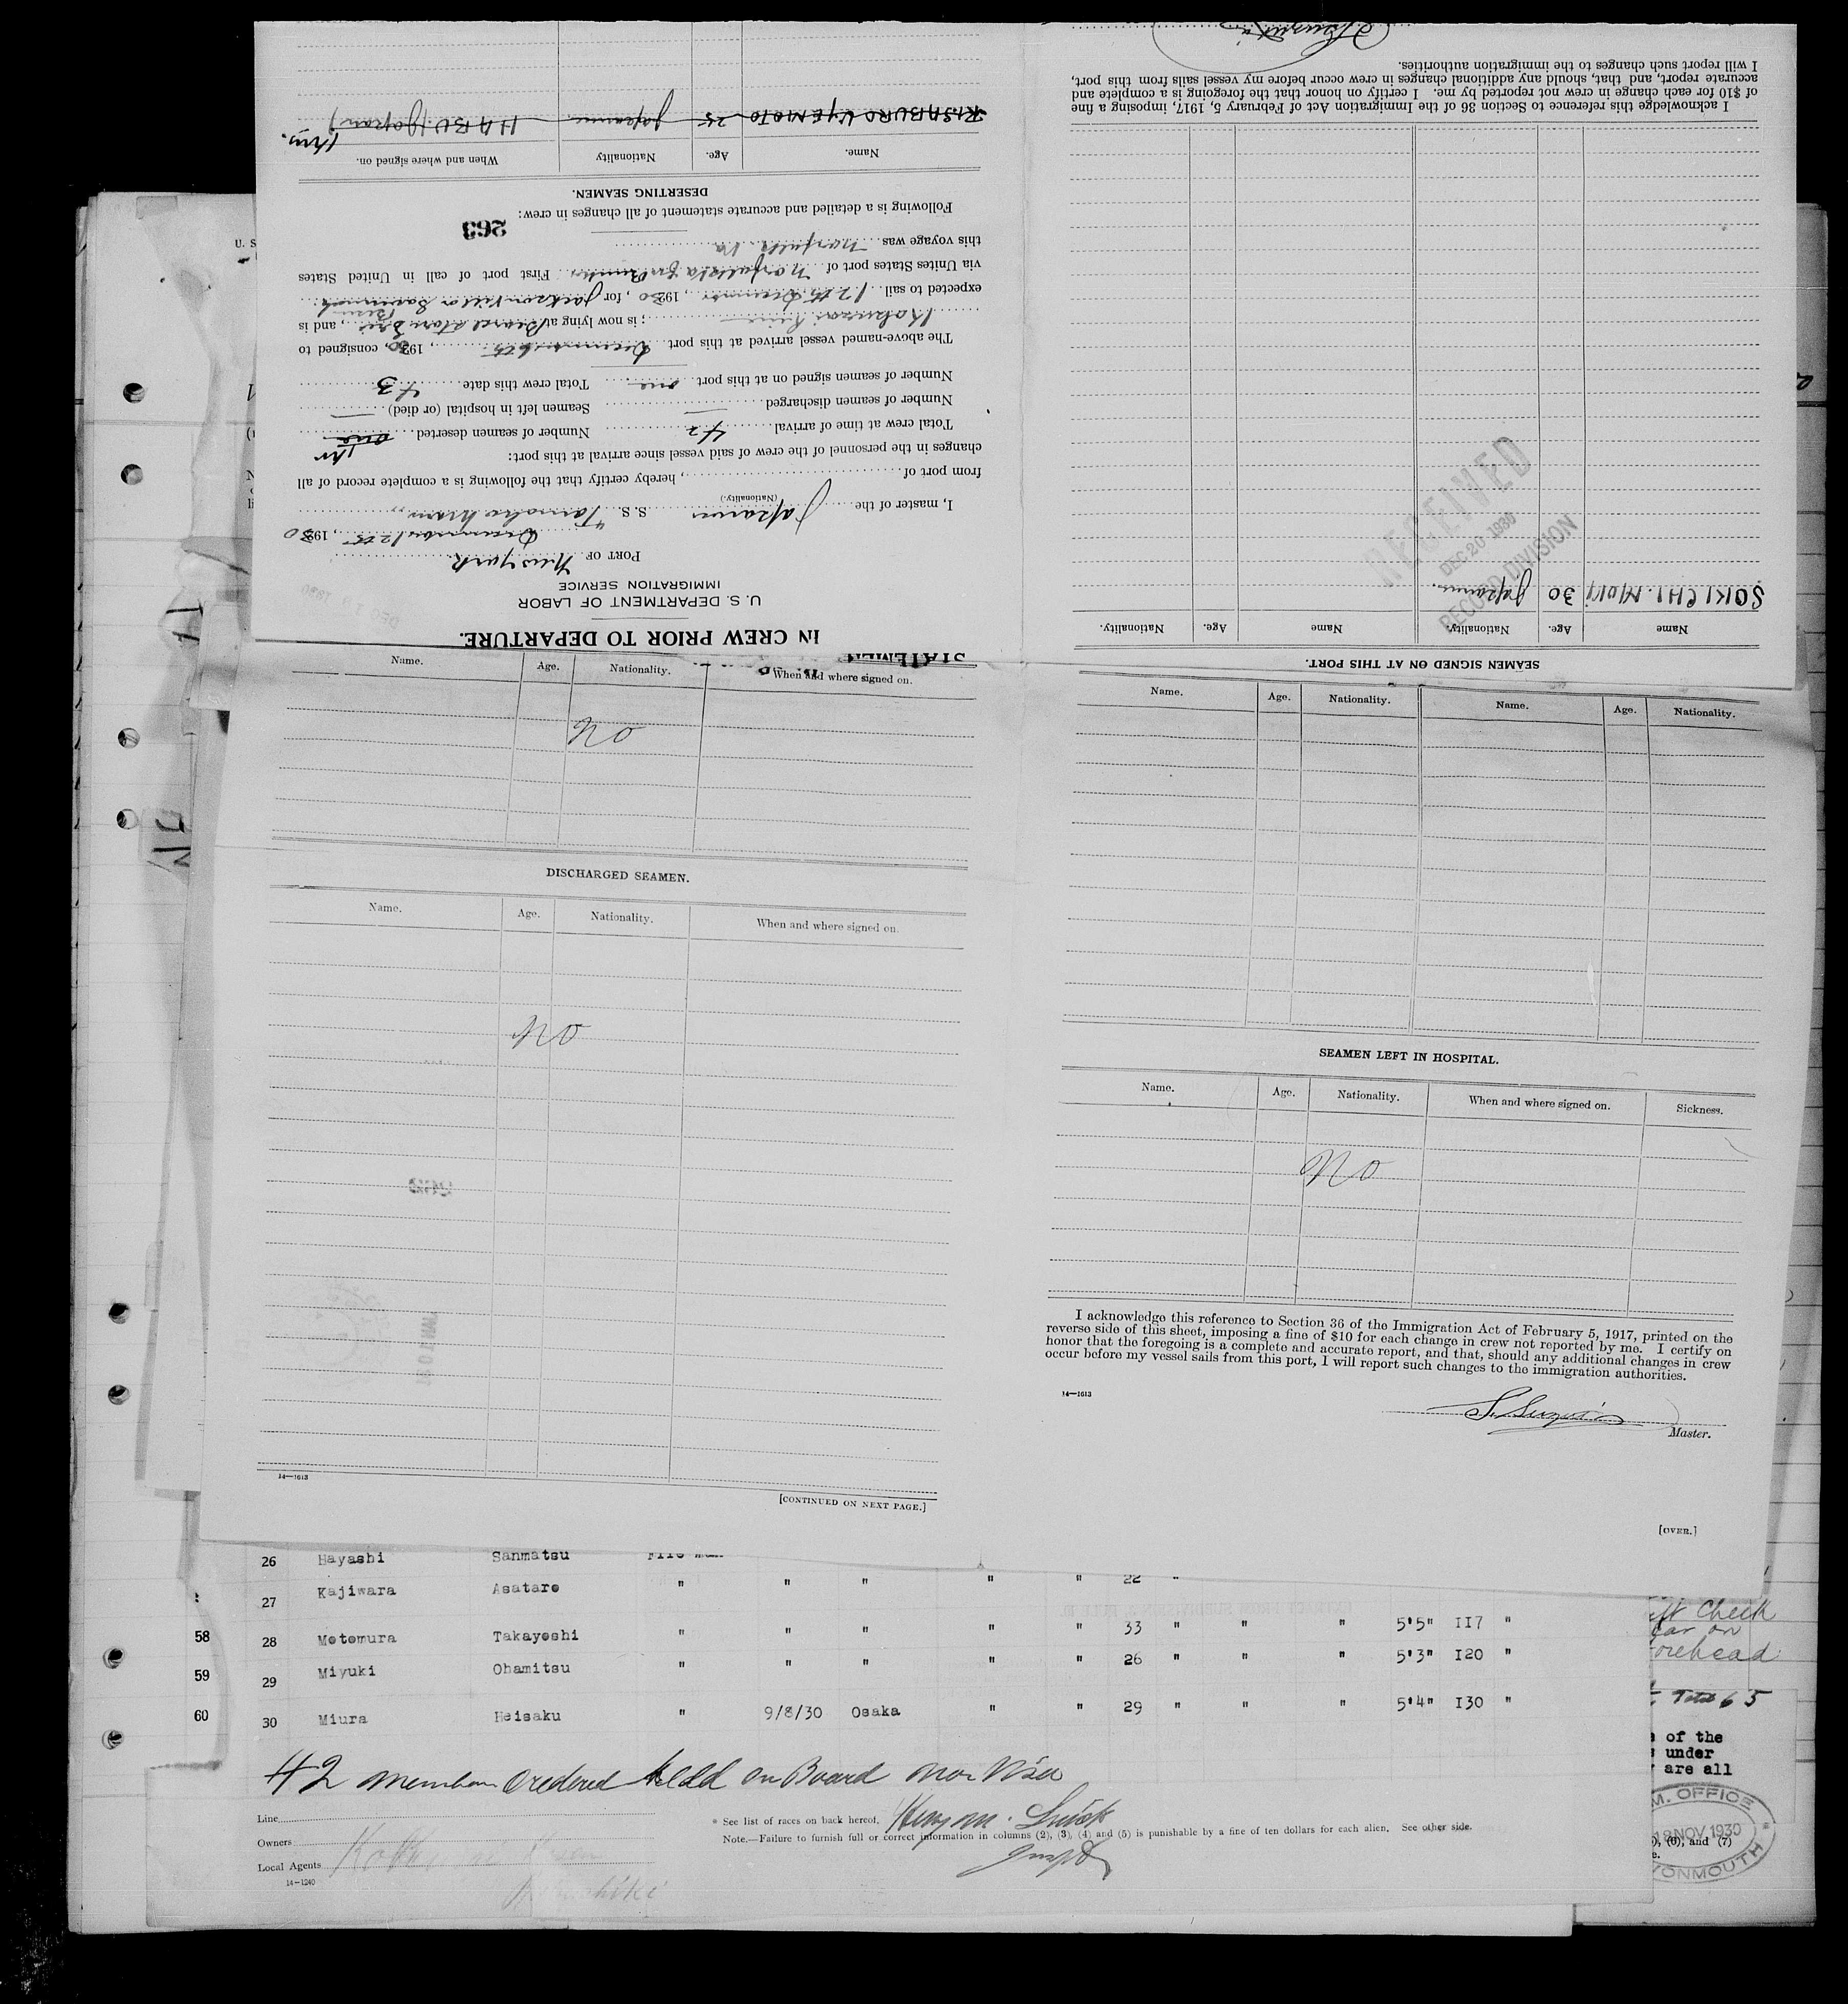 STATEMEN
IN CREW PRIOR TO DEPARTURE.
U. S. DEPARTMENT OF LABOR
IMMIGRATION SERVICE
PORT OF New York
December 12th, 1930
I, master of the Japanese S. S. "
(Nationality.)
from port of , hereby certify that the following is a complete record of all
changes in the personnel of the crew of said vessel since arrival at this port:
Total crew at time of arrival 42 Number of seamen deserted one
Number of seamen discharged — Seamen left in hospital (or died) —
Number of seamen signed on at this port one Total crew this date 43
The above-named vessel arrived at this port December 6th, 1930, consigned to
; is now lying at , and is
expected to sail 12th December, 1930, for Jacksonville
via Unites States port of First port of call in United States
this voyage was Norfolk Va
263
Following is a detailed and accurate statement of all changes in crew:
DESERTING SEAMEN.
Name. Age. Nationality When and where signed on.
RISABURO UYEMOTO 25 Japanese HABU (Japan)
SEAMEN SIGNED ON AT THIS PORT.
Name Age. Nationality. Name Age. Nationality.
SOKICHI. MORI 30 Japanese
RECEIVED
DEC 20 1930
RECORD DIVISION
I acknowledge this reference to Section 36 of the Immigration Act of February 5, 1917, imposing a fine
of $10 for each change in crew not reported by me. I certify on honor that the foregoing is a complete and
accurate report, and that, should any additional changes in crew occur before my vessel sails from this port,
I will report such changes to the immigration authorities.
U. S
Name. Age. Nationality. When and where signed on.
No
DISCHARGED SEAMEN.
Name. Age. Nationality. When and where signed on.
No
14—1613
[CONTINUED ON NEXT PAGE.]
Name. Age. Nationality. Name. Age. Nationality.
SEAMEN LEFT IN HOSPITAL.
Name. Age. Nationality. When and where signed on. Sickness.
No
I acknowledge this reference to Section 36 of the Immigration Act of February 5, 1917, printed on the
reverse side of this sheet, imposing a fine of $10 for each change in crew not reported by me. I certify on
honor that the foregoing is a complete and accurate report, and that, should any additional changes in crew
occur before my vessel sails from this port, I will report such changes to the immigration authorities.
14—1613
S. Suzuki
Master.
[OVER.]
26 Hayashi Sanmatsu
27 Kajiwara Asataro " " " " " 22 "
58 28 Motomura Takayoshi " " " " " 33 " " " 5'5" I17 "
59 29 Miyuki Ohamitsu " " " " " 26 " " " 5'3" I20 "
60 30 Miura Heisaku " 9/8/30 Osaka " " 29 " " " 5'4" I30 "
42 members ordered held on Board no Visa
Line
Owners
Local Agents
14—1240
* See list of races on back hereof.
Note.—Failure to furnish full or correct information in columns (2), (3), (4) and (5) is punishable by a fine of ten dollars for each alien. See other side.
Check
on
orehead
Total 65
of the
under
are all
M. OFFICE
18 NOV 1930
VONMOUTH
(6), and (7)